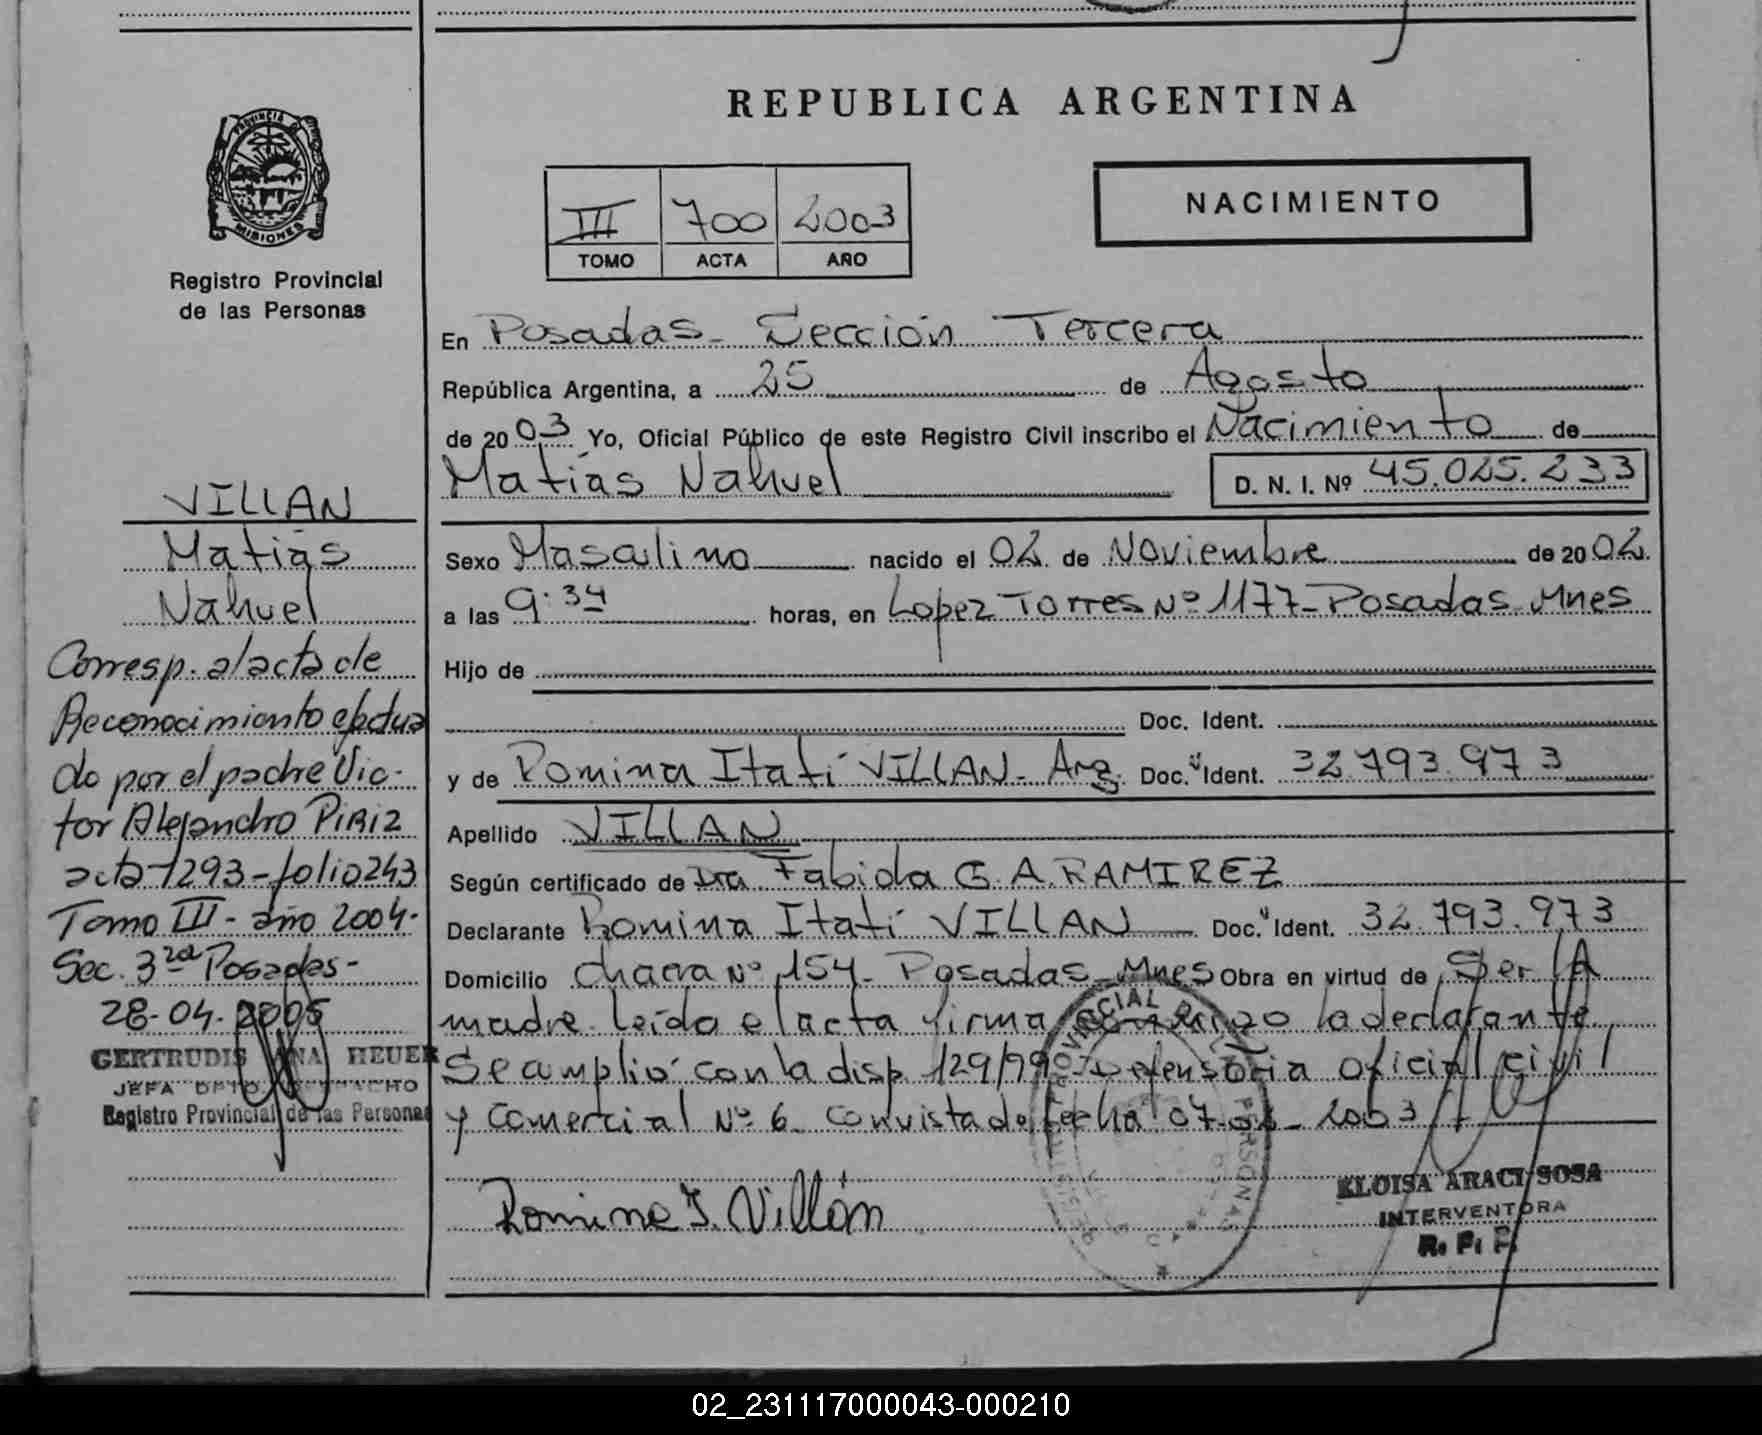 REPUBLICA ARGENTINA
PROVINCIA DE
MISIONES
Registro Provincial
de las Personas
III 700 2003
TOMO ACTA AÑO
NACIMIENTO
En Posadas - Sección Tercera
República Argentina, a 25 de Agosto
de 2003 Yo, Oficial Público de este Registro Civil inscribo el Nacimiento de
Matías Nahuel D. N. I. Nº 45.025.233
Sexo Masculino nacido el 02 de Noviembre de 2002.
a las 9:34 horas, en Lopez Torres Nº 1177 - Posadas - Mnes
Hijo de
Doc. Ident.
y de Romina Itatí VILLAN - Arg. Doc. Ident. 32.793.973
Apellido VILLAN
Según certificado de Dra Fabiola G. A. RAMIREZ
Declarante Romina Itatí VILLAN Doc. Ident. 32.793.973
Domicilio Chacra Nº 154 - Posadas - Mnes Obra en virtud de Ser la
madre. Leída el acta firma conmigo la declarante.
Se amplió con la disp. 129/99 Defensoria oficial civil
y comercial Nº 6 con vista de fecha 07- - 2003
Romina I. Villán
ELOISA ARACI SOSA
INTERVENTORA
R. P. P.
VILLAN
Matías
Nahuel
Corresp. al acta de
Reconocimiento efectua
do por el padre Víc-
tor Alejandro PIRIZ
acta 1293 - folio 243
Tomo III - año 2004.
Sec. 3ra Posadas -
28-04-2005
GERTRUDIS ANA HEUER
JEFA DPTO
Registro Provincial de las Personas
02_231117000043-000210